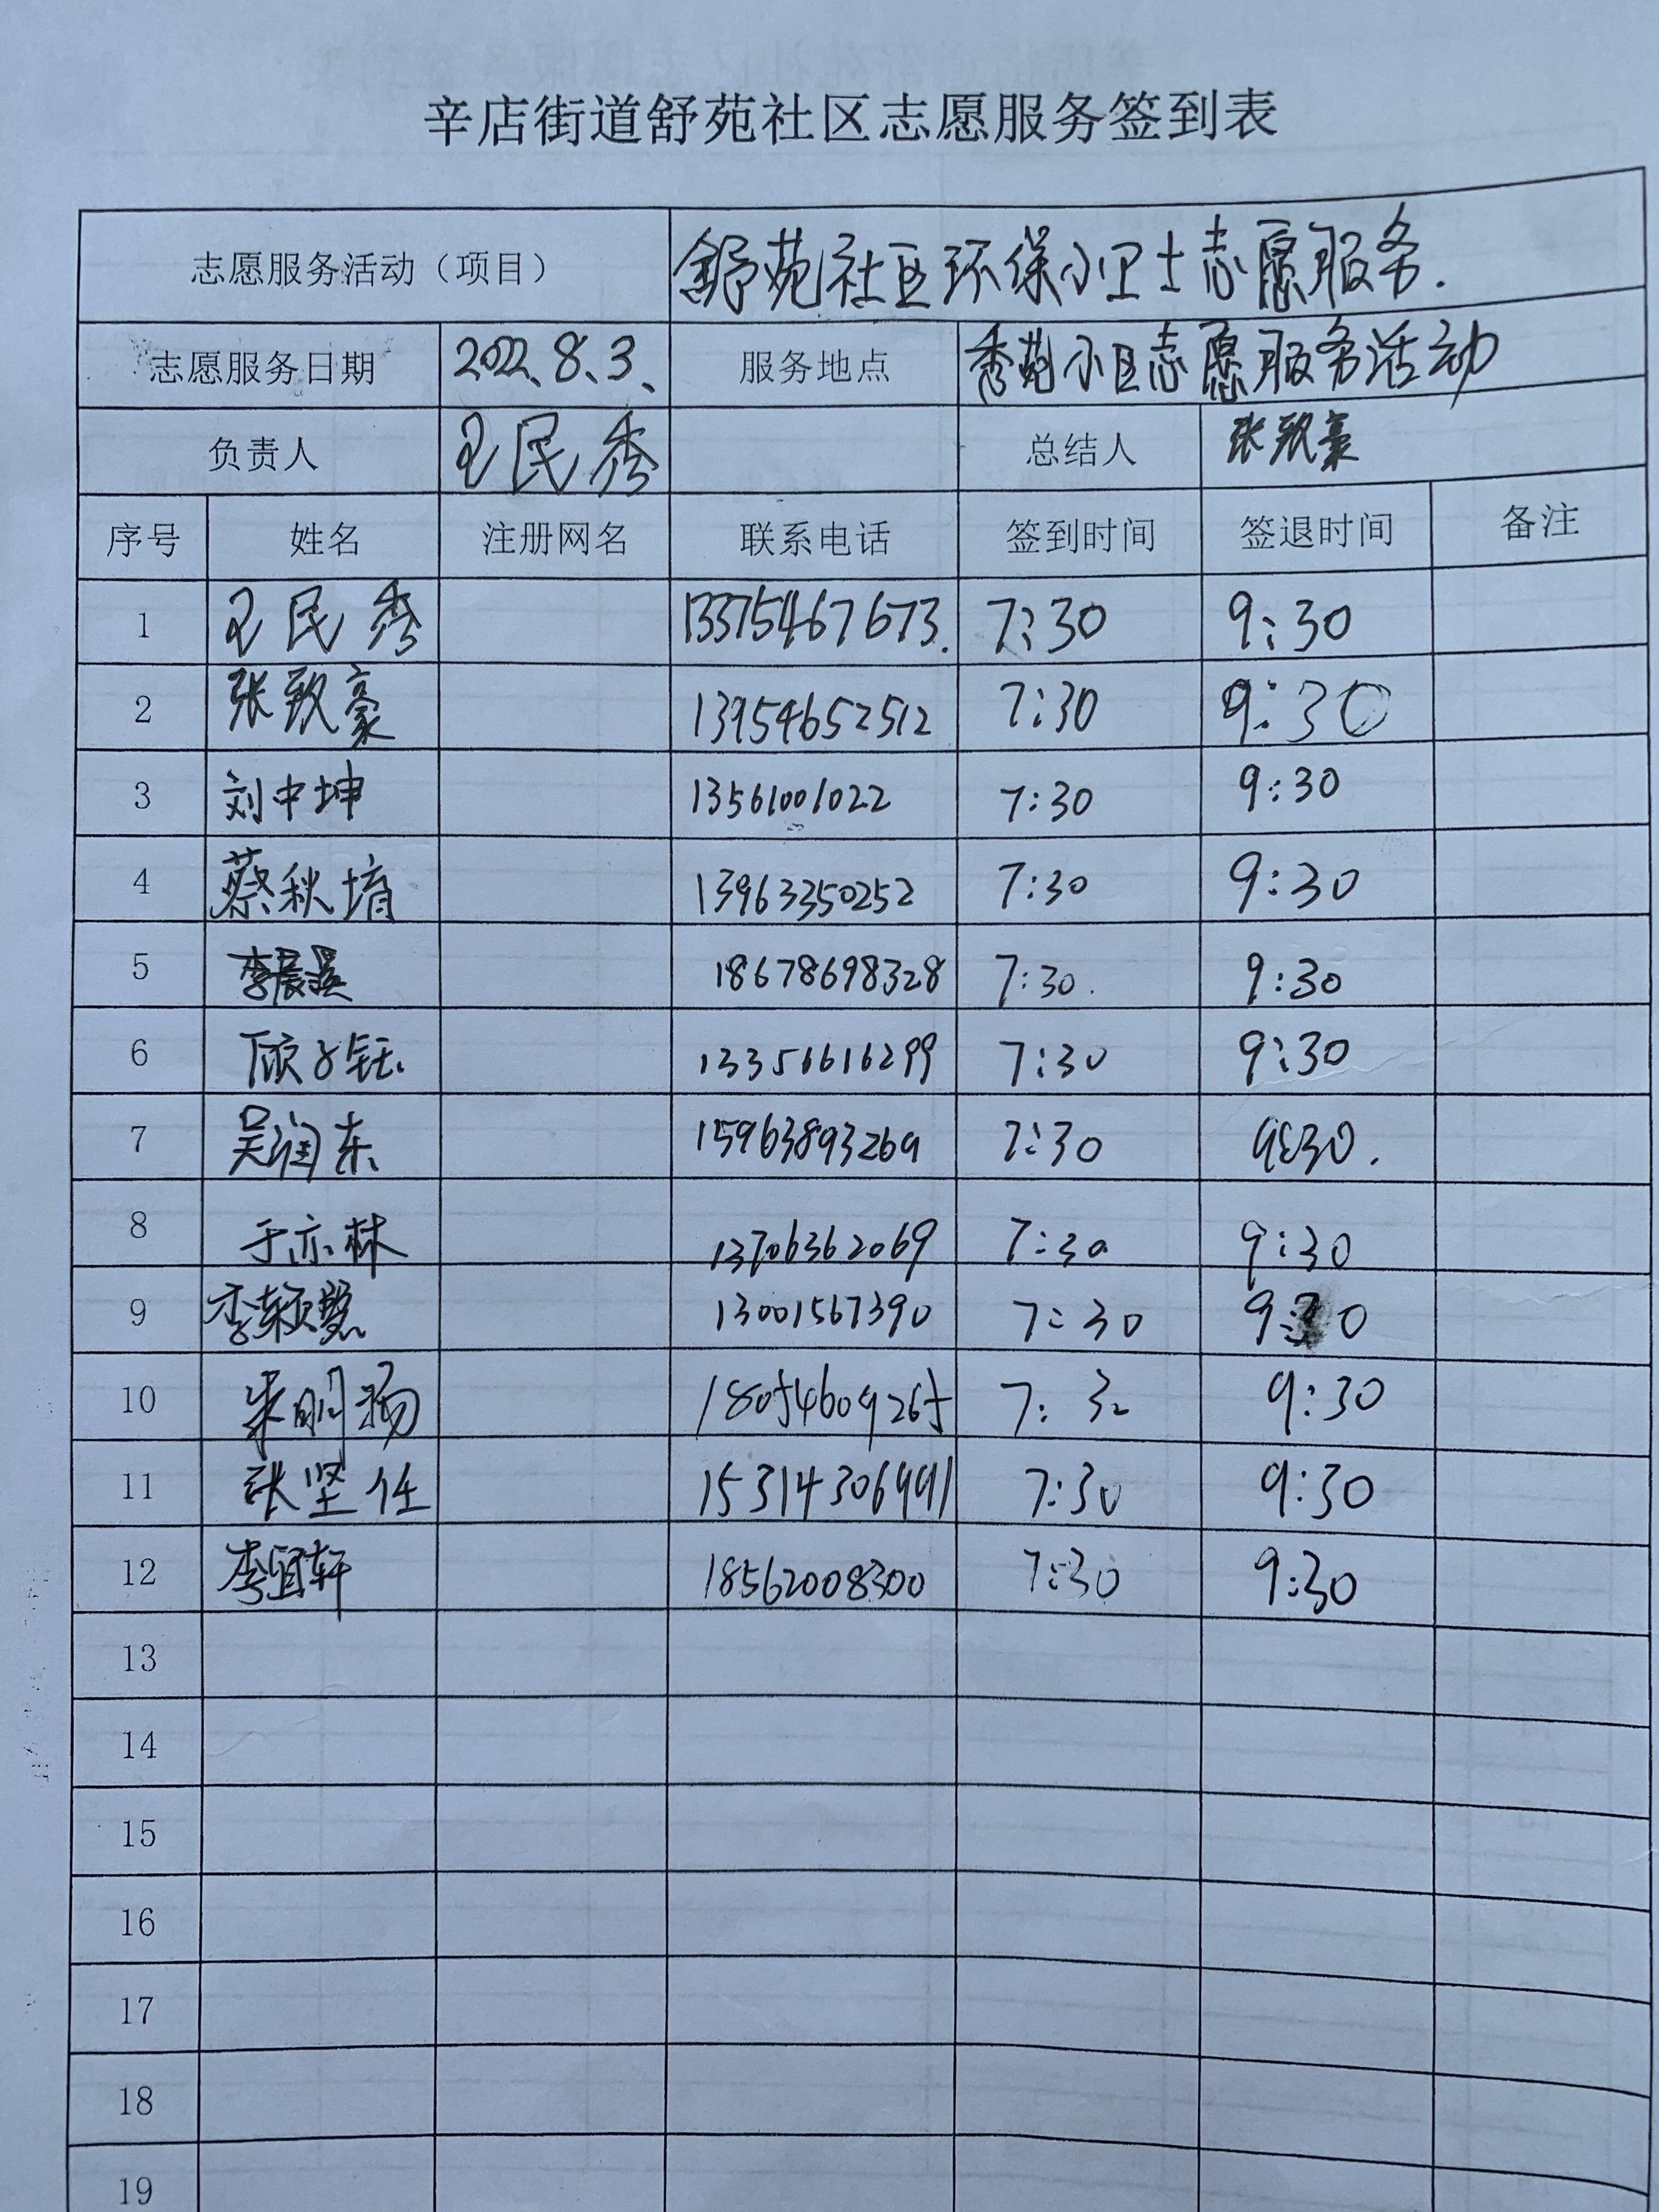 辛店街道舒苑社区志愿服务签到表
志愿服务活动（项目） 舒苑社区环保小卫士志愿服务.
志愿服务日期 2022、8、3、 服务地点 秀苑小区志愿服务活动
负责人 王民秀 总结人 张致豪
序号 姓名 注册网名 联系电话 签到时间 签退时间 备注
1 王民秀 13375467673. 7:30 9:30
2 张致豪 13954652512 7:30 9:30
3 刘中坤 13561001022 7:30 9:30
4 蔡秋堉 13963350252 7:30 9:30
5 李晨溪 18678698328 7:30. 9:30
6 顾子钰 13356616299 7:30 9:30
7 吴润东 15963893269 7:30 9:30.
8 于亦林 13706362069 7:30 9:30
9 李颖慧 13001567390 7:30 9:30
10 朱明扬 18054609265 7:30 9:30
11 张坚任 15314306991 7:30 9:30
12 李宜轩 18562008300 7:30 9:30
13
14
15
16
17
18
19